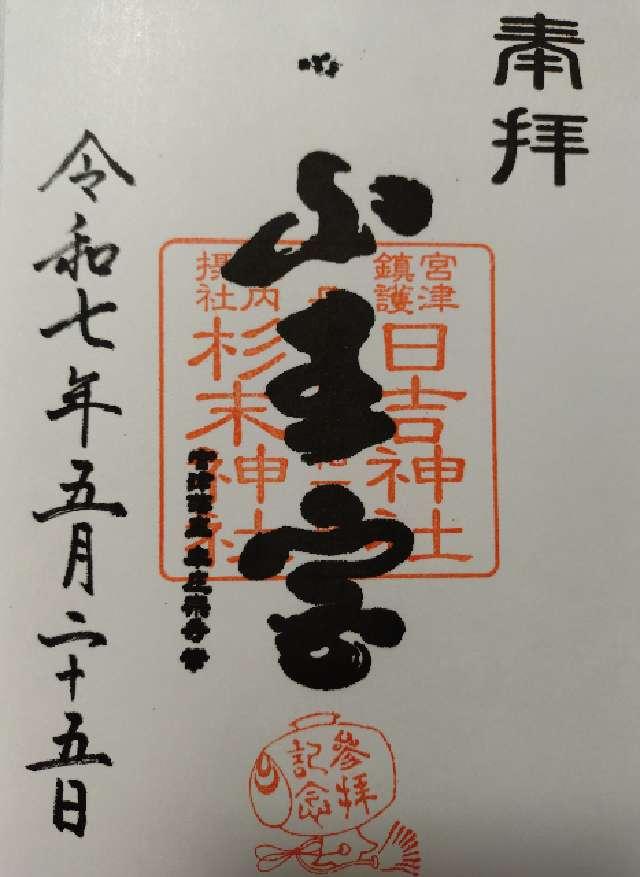 奉拝
山王宮
宮津
鎮護
日吉神社
摂社
杉末神社
令和七年五月二十五日
参拝
記念